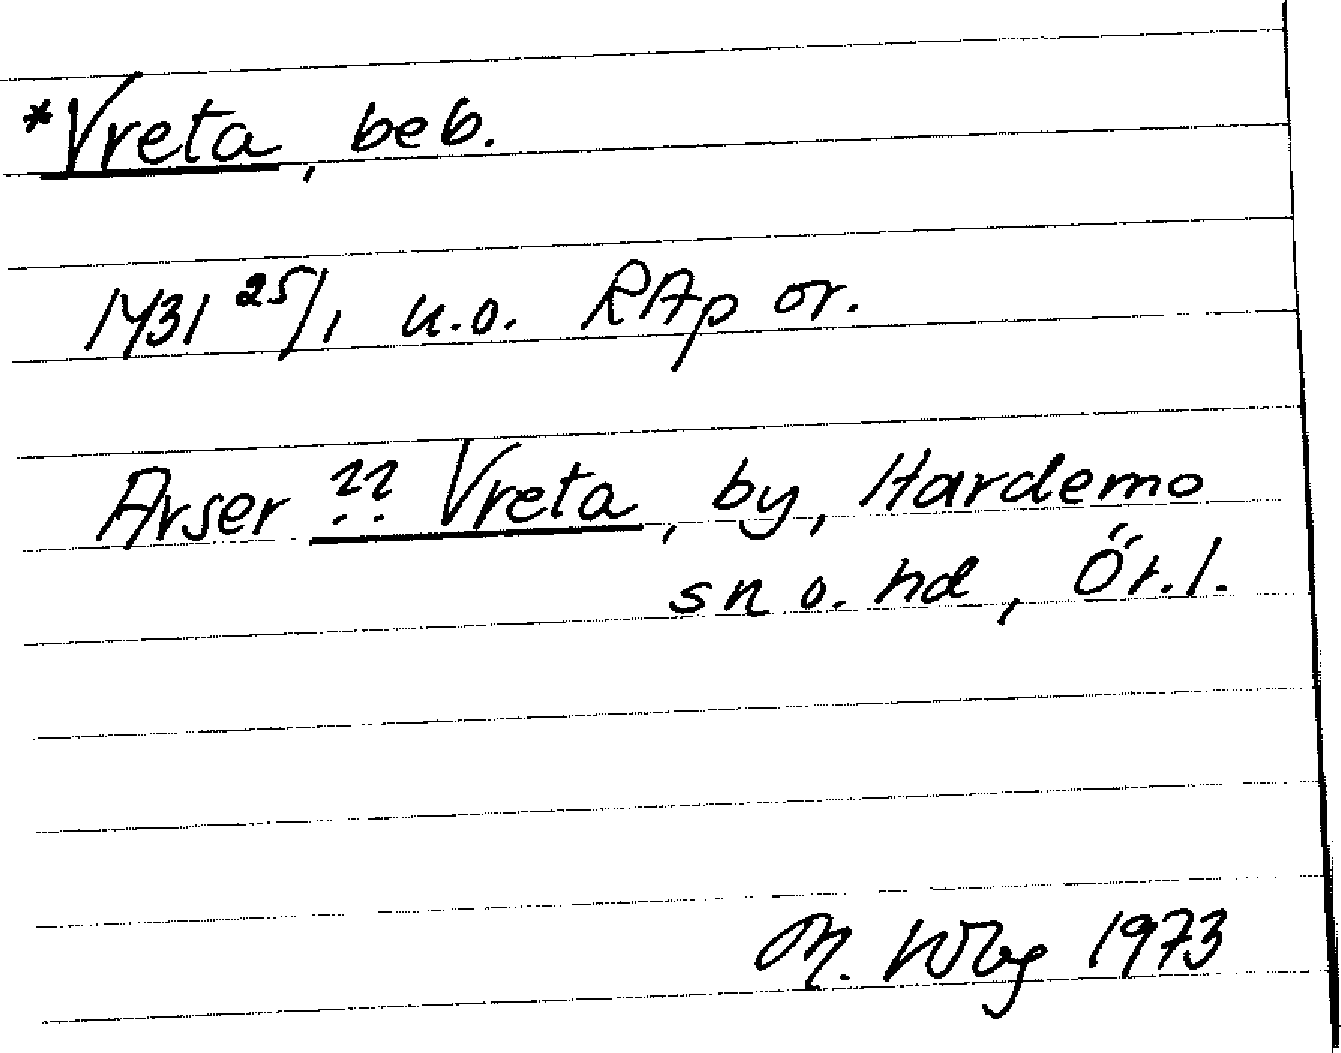 *Vreta, beb.
1431 25/1 u.o. RAp or.
Avser ?? Vreta, by, Hardemo
sn o. hd, Ör.l.
M. Wbg 1973